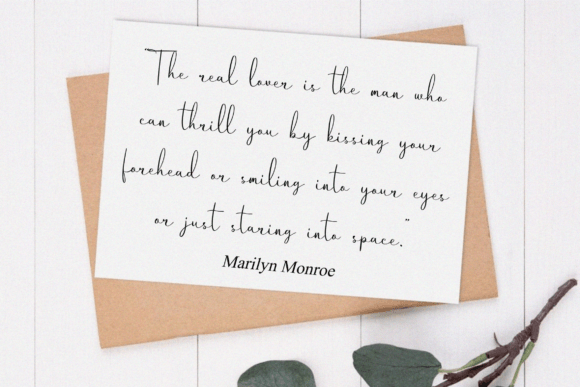 "The real lover is the man who
can thrill you by kissing your
forehead or smiling into your eyes
or just staring into space."
Marilyn Monroe